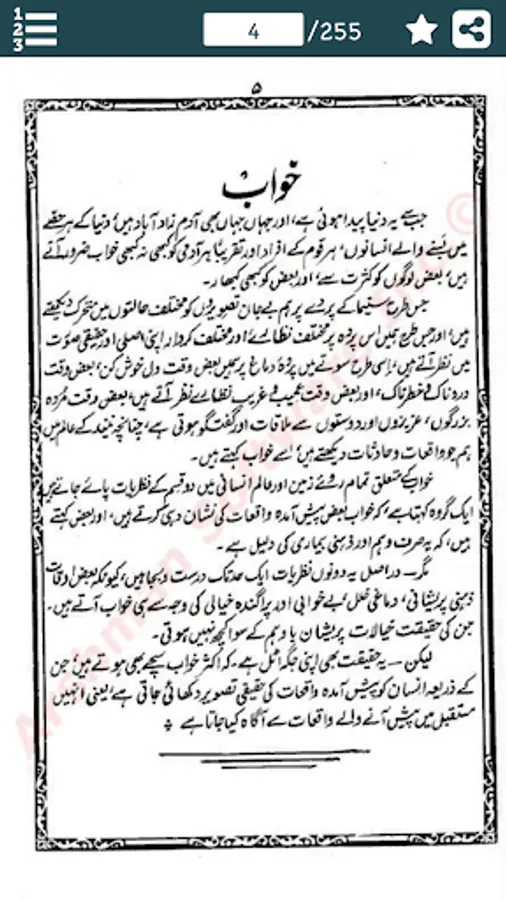 1
2
3
4 /255
۵
خواب
جب سے یہ دنیا پیدا ہوئی ہے، اور جہاں جہاں بھی آدم زاد آباد ہیں، دنیا کے ہر حصّے
میں بسنے والے انسانوں، ہر قوم کے افراد اور تقریباً ہر آدمی کو کبھی نہ کبھی خواب ضرور آتے
ہیں، بعض لوگوں کو کثرت سے، اور بعض کو کبھی کبھار۔
جس طرح سنیما کے پردے پر ہم بے جان تصویروں کو مختلف حالتوں میں متحرک دیکھتے
ہیں، اور جس طرح ہمیں اس پردہ پر مختلف نظارے، اور مختلف کردار اپنی اصلی اور حقیقی صورت
میں نظر آتے ہیں، اسی طرح سوتے میں پردۂ دماغ پر ہمیں بعض وقت دل خوش کن، بعض وقت
دردناک و خطرناک، اور بعض وقت عجیب و غریب نظارے نظر آتے ہیں، بعض وقت مُردہ
بزرگوں، عزیزوں اور دوستوں سے ملاقات اور گفتگو ہوتی ہے، چنانچہ نیند کے عالم میں
ہم جو واقعات و حادثات دیکھتے ہیں، اسے خواب کہتے ہیں۔
خواب کے متعلق تمام روئے زمین اور عالم انسانی میں دو قسم کے نظریات پائے جاتے ہیں
ایک گروہ کہتا ہے، کہ خواب بعض پیش آمدہ واقعات کی نشان دہی کرتے ہیں، اور بعض کہتے
ہیں، کہ یہ صرف وہم اور ذہنی بیماری کی دلیل ہے۔
مگر — دراصل یہ دونوں نظریات ایک حد تک درست و بجا ہیں، کیونکہ بعض اوقات
ذہنی پریشانی، دماغی خلل، بے خوابی اور پراگندہ خیالی کی وجہ سے ہی خواب آتے ہیں۔
جن کی حقیقت خیالات پریشان یا وہم کے سوا کچھ نہیں ہوتی۔
لیکن — یہ حقیقت بھی اپنی جگہ اٹل ہے۔ کہ اکثر خواب سچے بھی ہوتے ہیں، جن
کے ذریعہ انسان کو پیش آمدہ واقعات کی حقیقی تصویر دکھائی جاتی ہے، یعنی انہیں
مستقبل میں پیش آنے والے واقعات سے آگاہ کیا جاتا ہے